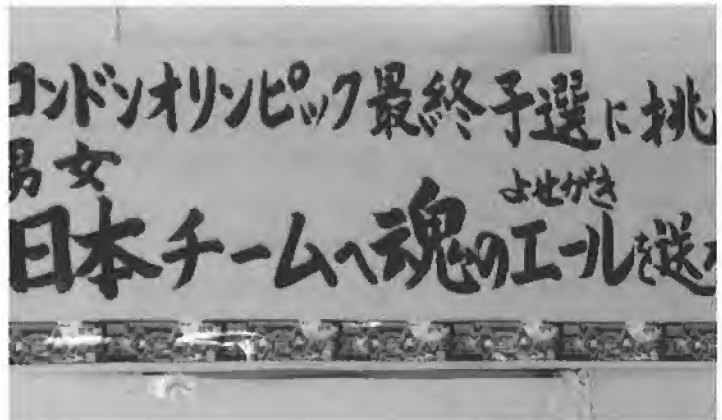 ロンドンオリンピック最終予選に挑
男女
よせがき
日本チームへ魂のエールを送